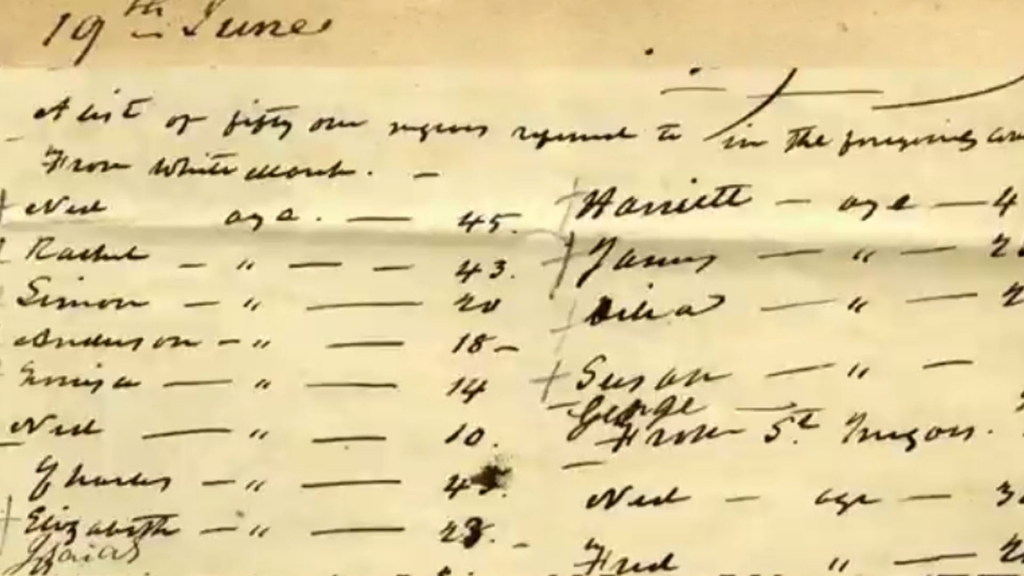 19th June
A list of fifty one negroes referred to in the foregoing
From White Marsh. —
Ned age. — 45.
Rachel — " — — 43.
Simon — " — 20
Anderson — " — 18 —
Louisa — " — 14
Ned — " — 10.
Charles — " — 45.
Elizabeth — " — 23. —
Isaias
Harriett — age — 4
James — " — 2
Delia — " — 2
Susan — " —
George —
From St Inigoes.
Ned — age — 3
Fred " — 2